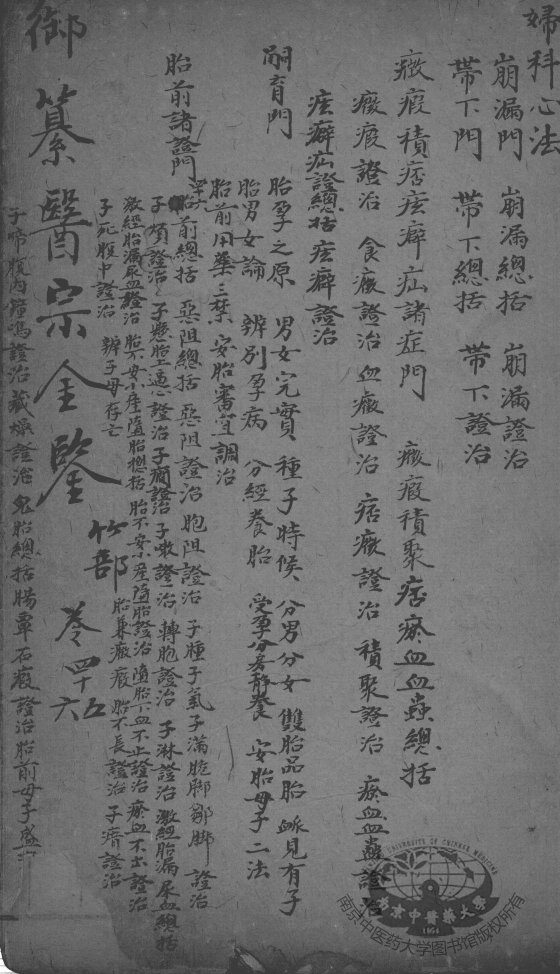 婦科心法
崩漏門 崩漏總括 崩漏證治
帶下門 帶下總括 帶下證治
癥瘕積痞痃癖疝諸症門 癥瘕積聚痞瘀血血蟲總括
癥瘕證治 食癥證治 血癥證治 痞癥證治 積聚證治 瘀血血蠱證治
痃癖疝證總括 痃癖證治
嗣育門 胎孕之原 男女完實 種子時候 分男分女 雙胎品胎 脈見有子
胎男女論 辨別孕病 分經養胎 受孕分房靜養 安胎母子二法
胎前用藥三禁 安胎審宜調治
胎前諸證門 胎前總括 惡阻總括 惡阻證治 胞阻證治 子腫子氣子滿脆腳皺腳證治
子煩證治 子懸胎上逼心證治 子癇證治 子嗽證治 轉胞證治 子淋證治 激經胎漏尿血總括
激經胎漏尿血證治 胎不安小產墮胎總括 胎不安小產墮胎證治 墮胎下血不止證治 瘀血不出證治
子死腹中證治 辨子母存亡 胎兼癥瘕 胎不長證治 子瘖證治
御纂醫宗金鑒 竹部 卷四十五六
子啼腹內鐘鳴證治 藏燥證治 鬼胎總括 腸覃石瘕證治 胎前母子盛
UNIVERSITY OF CHINESE MEDICINE
南京中醫藥大學
1954
南京中医药大学图书馆版权所有